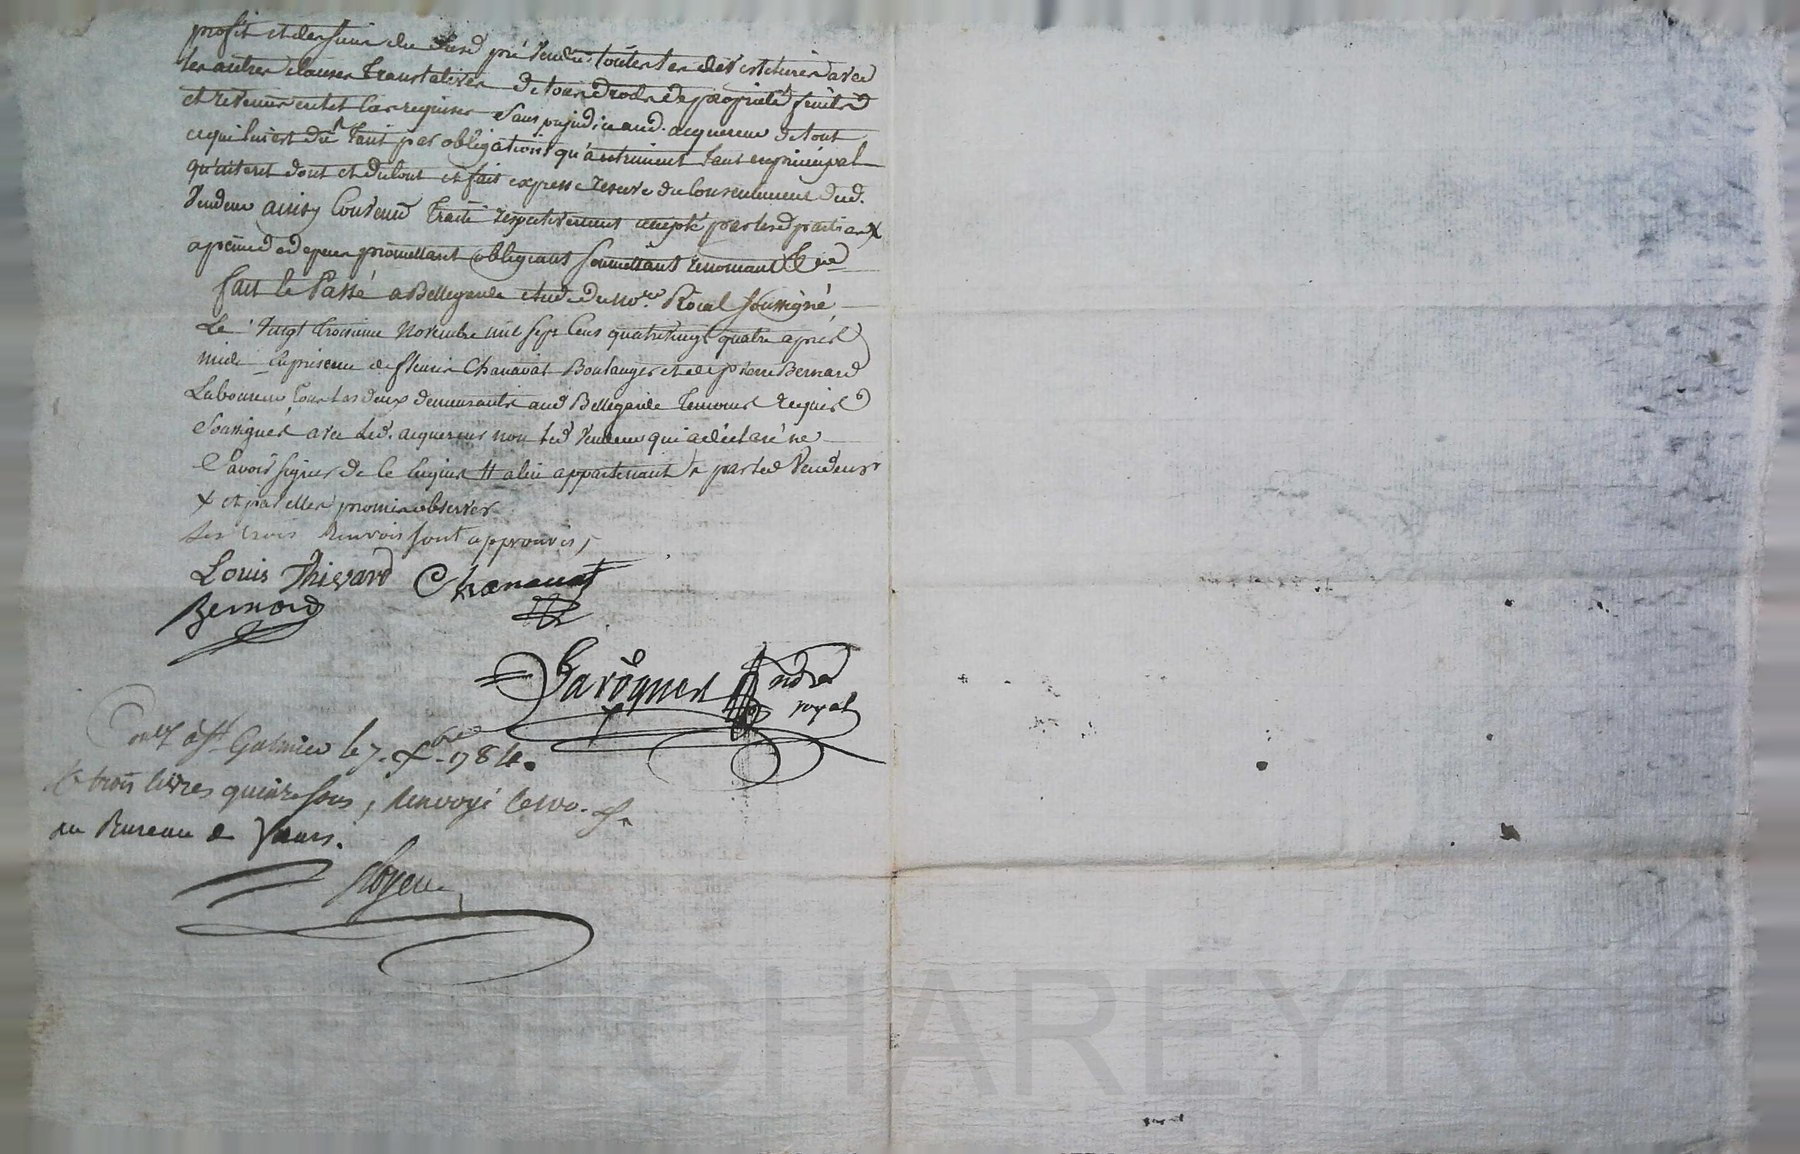 profit et des siens du susd pré vendu. toutes les devestitures avec
les autres clauses translatives de tous droits de propriété fruits
et revenus en tel cas requises sans prejudice aud. acquereur de tout
ce qui lui est dû tant par obligations qu'autrement tant en principal
qu'interet dont et du tout est fait expresse reserve du consentement dud.
Vendeur ainsy Convenu traité respectivement accepté par les d parties X
a peine d depens promettant obligeant soumettant renonçant &
fait & Passé a Bellegarde etude du no.re Roial soussigné
Le Vingt troisieme Novembre mil sept Cens quatrevingt quatre après
midi en presence de fleurie Chanavat Boulanger et de pierre Bernard
Laboureur tous les deux demeurants aud Bellegarde temoins requis
Soussignés avec led. acquereur non led Vendeur qui a declaré ne
Savoir signer de ce enquis # a lui appartenant par led Vendeur
X et par elles promis observer
Les trois Renvois sont approuvés,
Louis Thivard Chanauat
Bernard
royal
à St Galmier le 7. Xbre 1784.
trois livres quinze sous, Renvoyé
au Bureau de